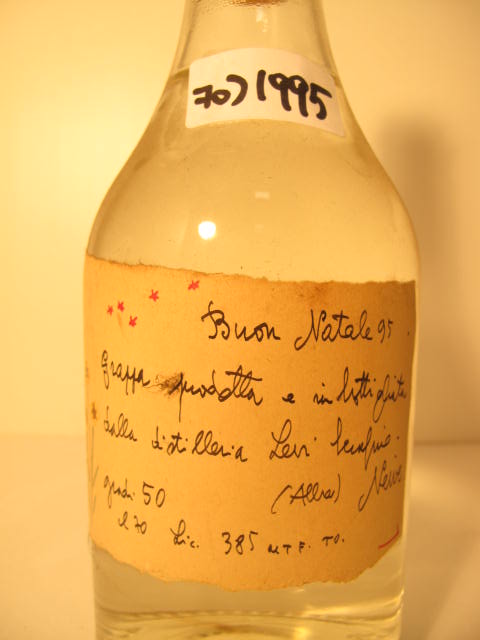 70) 1995
Buon Natale 95.
grappa prodotta e imbottigliata
dalla distilleria Levi Serafino.
gradi 50 (Alba) Neive
cl 70 Lic. 385 UTF. TO.